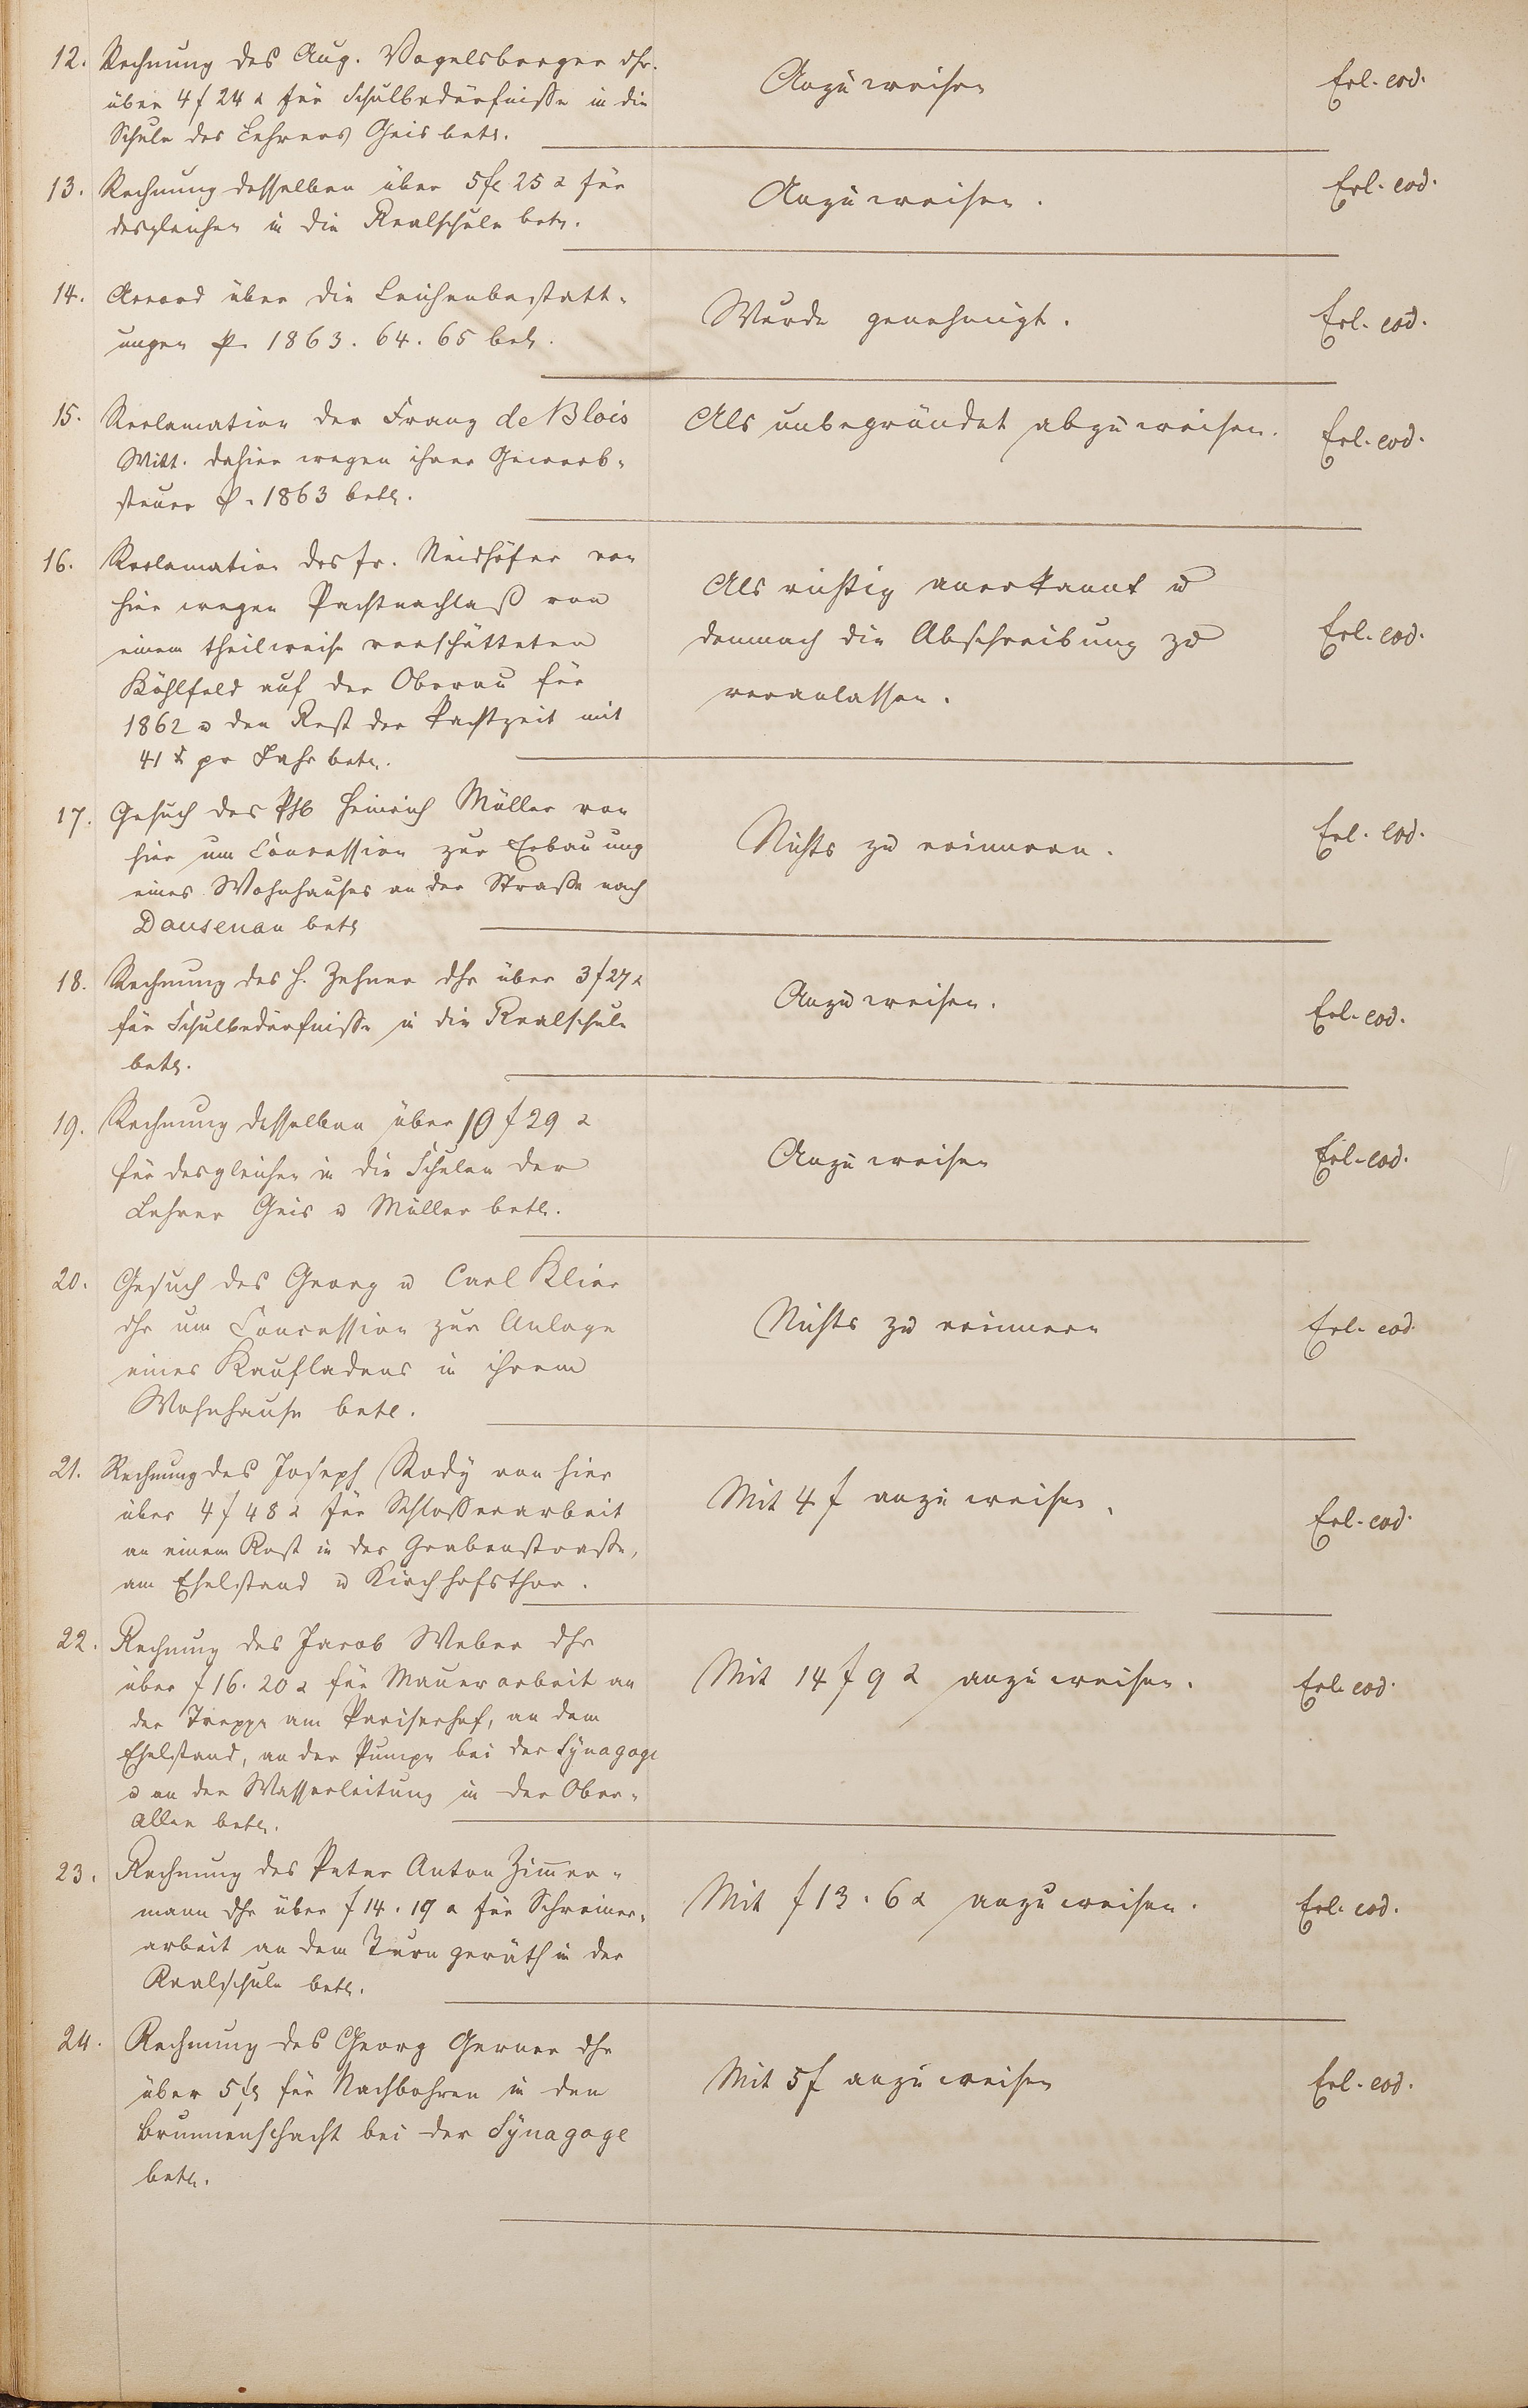 12. Rechnung des Aug. Vogelsberger dhr.
über 4 f 24 x für Schulbedürfnisse in die
Schule des Lehrers Geis betr.
Anzuweisen
Erl. eod.
13. Rechnung desselben über 5 fl 25 x für
desgleichen in die Realschule betr.
Anzuweisen.
Erl. eod.
14. Accord über die Leichenbestatt-
ungen p. 1863. 64. 65 betr.
Wurde genehmigt.
Erl. eod.
15. Reclamation der Franz de Blois
Witt. dahier wegen ihrer Gewerb-
steuer p. 1863 betr.
Als unbegründet abzuweisen.
Erl. eod.
16. Reclamation des Fr. Neidhöfer von
hier wegen Pachtnachlaß von
einem theilweise verschütteten
Köhlfeld auf der Oberau für
1862 u den Rest der Pachtzeit mit
41 x pr Jahr betr.
Als richtig anerkannt u
demnach die Abschreibung zu
veranlassen.
Erl. eod.
17. Gesuch des Heinrich Müller von
hier um Concession zur Erbauung
eines Wohnhauses an der Straße nach
Dausenau betr
Nichts zu erinnern.
Erl. eod.
18. Rechnung des H. Zehner dhr über 3 f 27 x
für Schulbedürfnisse in die Realschule
betr.
Anzuweisen.
Erl. eod.
19. Rechnung desselben über 10 f 29 x
für desgleichen in die Schulen der
Lehrer Geis u Müller betr.
Anzuweisen
Erl. eod.
20. Gesuch des Georg u Carl Klier
dhr um Concession zur Anlage
eines Kaufladens in ihrem
Wohnhause betr.
Nichts zu erinnern
Erl. eod.
21. Rechnung des Joseph Rody von hier
über 4 f 48 x für Schlosserarbeit
an einem Rost in der Grabenstraße,
am Eselstand u Kirchhofsthor.
Mit 4 f anzuweisen.
Erl. eod.
22. Rechnung des Jacob Weber dhr
über f 16. 20 x für Maurerarbeit an
der Treppe am Pariserhof, an dem
Eselstand, an der Pumpe bei der Synagoge
u an der Wasserleitung in der Ober-
allee betr.
Mit 14 f 9 x anzuweisen.
Erl. eod.
23. Rechnung des Peter Anton Zimmer-
mann dhr über f 14. 19 x für Schreiner-
arbeit an dem Turngeräth in der
Realschule betr.
Mit f 13. 6 x anzuweisen.
Erl. eod.
24. Rechnung des Georg Gerner dhr
über 5 fl für Nachbohren in den
Brunnenschacht bei der Synagoge
betr.
Mit 5 f anzuweisen
Erl. eod.